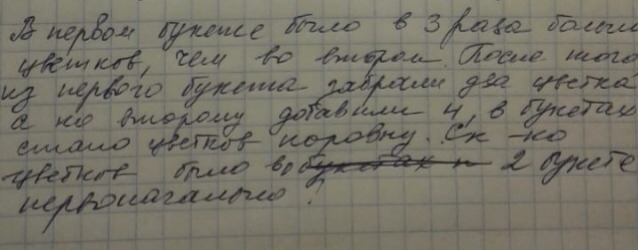 В первом букете было в 3 раза больше
цветков, чем во втором. После того
из первого букета забрали два цветка
а ко второму добавили 4, в букетах
стало цветков поровну. Ск-ко
цветков было во букетах п 2 букете
первоначально?